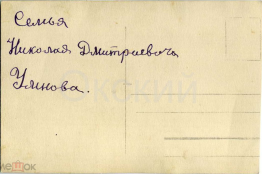 Семья
Николая Дмитриевича
Умнова.